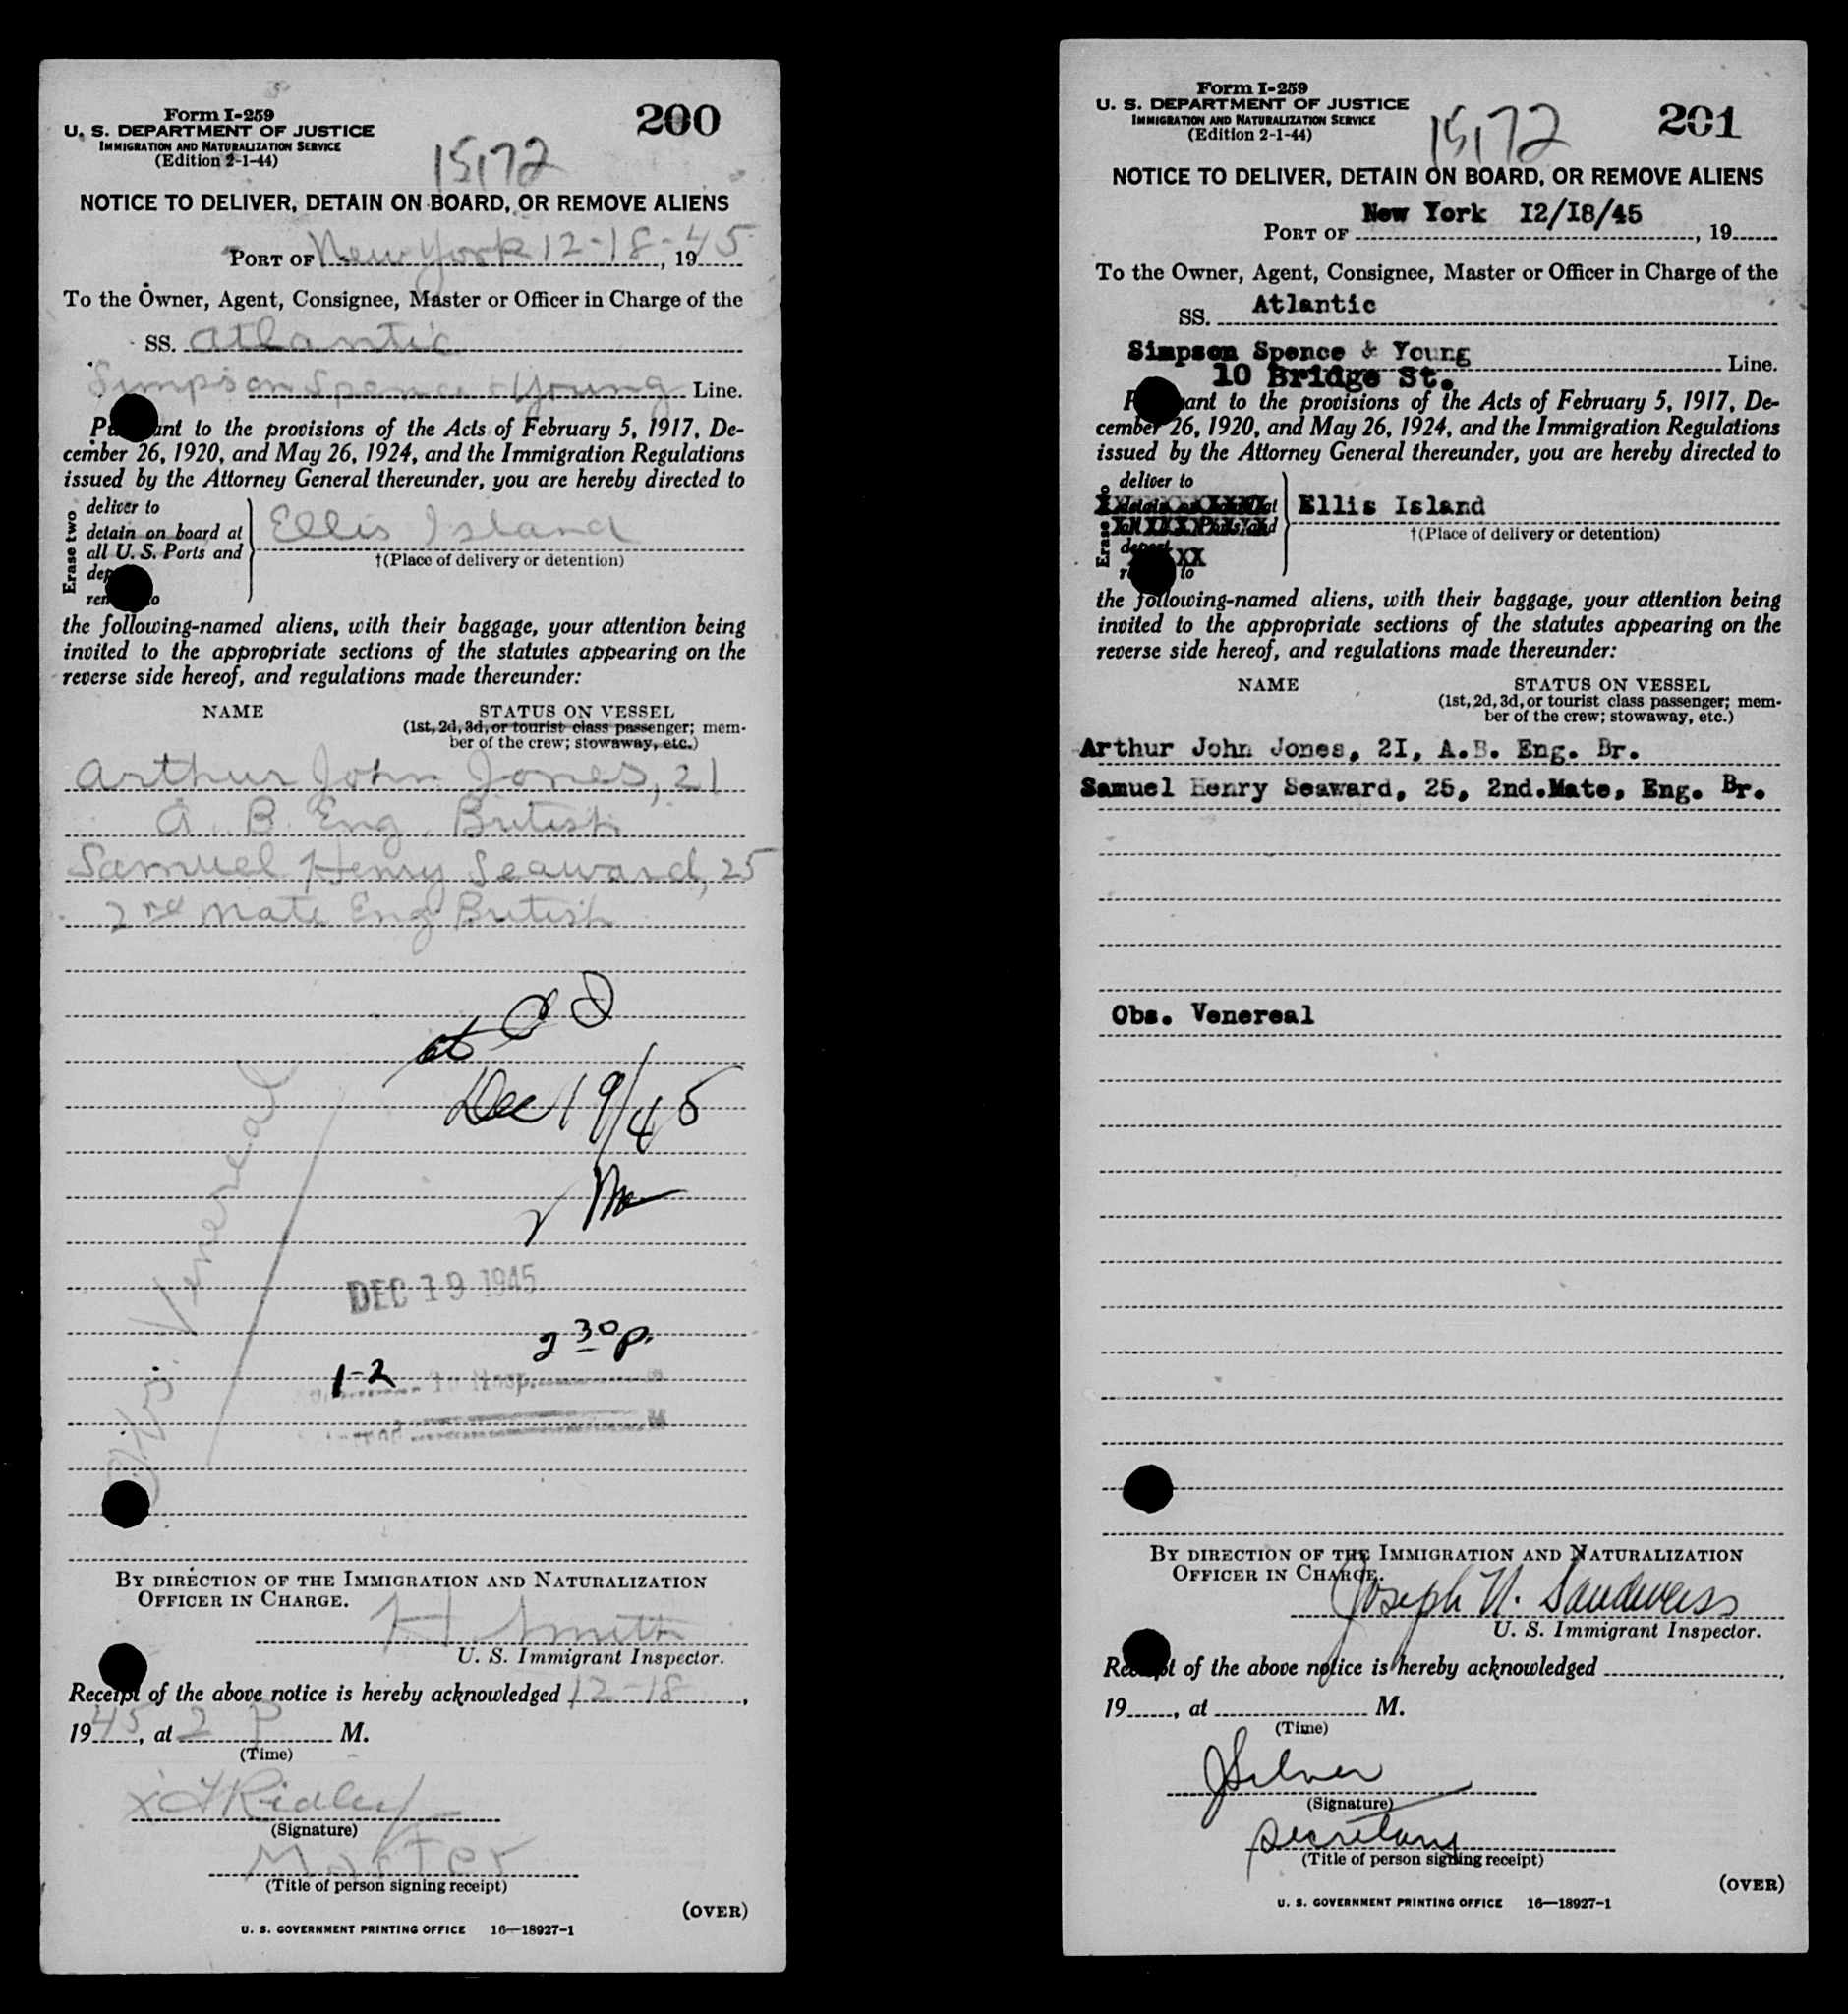 Form I-259
U. S. DEPARTMENT OF JUSTICE
IMMIGRATION AND NATURALIZATION SERVICE
(Edition 2-1-44)
200
15172
NOTICE TO DELIVER, DETAIN ON BOARD, OR REMOVE ALIENS
PORT OF New York 12-18-45, 195
To the Owner, Agent, Consignee, Master or Officer in Charge of the
SS. Atlantic
Simpson Spence & Young Line.
ant to the provisions of the Acts of February 5, 1917, De-
cember 26, 1920, and May 26, 1924, and the Immigration Regulations
issued by the Attorney General thereunder, you are hereby directed to
Erase two
deliver to
detain on board at
all U. S. Ports and
Ellis Island
†(Place of delivery or detention)
the following-named aliens, with their baggage, your attention being
invited to the appropriate sections of the statutes appearing on the
reverse side hereof, and regulations made thereunder:
NAME STATUS ON VESSEL
(1st, 2d, 3d, or tourist class passenger; mem-
ber of the crew; stowaway, etc.)
Arthur John Jones, 21
A. B. Eng. British
Samuel Henry Seaward, 25
2nd Mate Eng British
at
Dec 19/45
Obs. Venereal
DEC 19 1945
2 30 p.
1-2
To Hosp.
BY DIRECTION OF THE IMMIGRATION AND NATURALIZATION
OFFICER IN CHARGE.
H Smith
U. S. Immigrant Inspector.
Receipt of the above notice is hereby acknowledged 12-18,
1945, at 2 P M.
(Time)
Ridley
(Signature)
Master
(Title of person signing receipt)
(OVER)
U. S. GOVERNMENT PRINTING OFFICE 16—18927-1
Form I-259
U. S. DEPARTMENT OF JUSTICE
IMMIGRATION AND NATURALIZATION SERVICE
(Edition 2-1-44)
201
15172
NOTICE TO DELIVER, DETAIN ON BOARD, OR REMOVE ALIENS
New York I2/I8/45
PORT OF , 19
To the Owner, Agent, Consignee, Master or Officer in Charge of the
SS. Atlantic
Simpson Spence & Young Line.
10 Bridge St.
ant to the provisions of the Acts of February 5, 1917, De-
cember 26, 1920, and May 26, 1924, and the Immigration Regulations
issued by the Attorney General thereunder, you are hereby directed to
deliver to
Ellis Island
†(Place of delivery or detention)
the following-named aliens, with their baggage, your attention being
invited to the appropriate sections of the statutes appearing on the
reverse side hereof, and regulations made thereunder:
NAME STATUS ON VESSEL
(1st, 2d, 3d, or tourist class passenger; mem-
ber of the crew; stowaway, etc.)
Arthur John Jones, 2I, A.B. Eng. Br.
Samuel Henry Seaward, 25, 2nd.Mate, Eng. Br.
Obs. Venereal
BY DIRECTION OF THE IMMIGRATION AND NATURALIZATION
OFFICER IN CHARGE.
Joseph N. Sandweiss
U. S. Immigrant Inspector.
Receipt of the above notice is hereby acknowledged ,
19 , at M.
(Time)
J Silver
(Signature)
Secretary
(Title of person signing receipt)
(OVER)
U. S. GOVERNMENT PRINTING OFFICE 16—18927-1